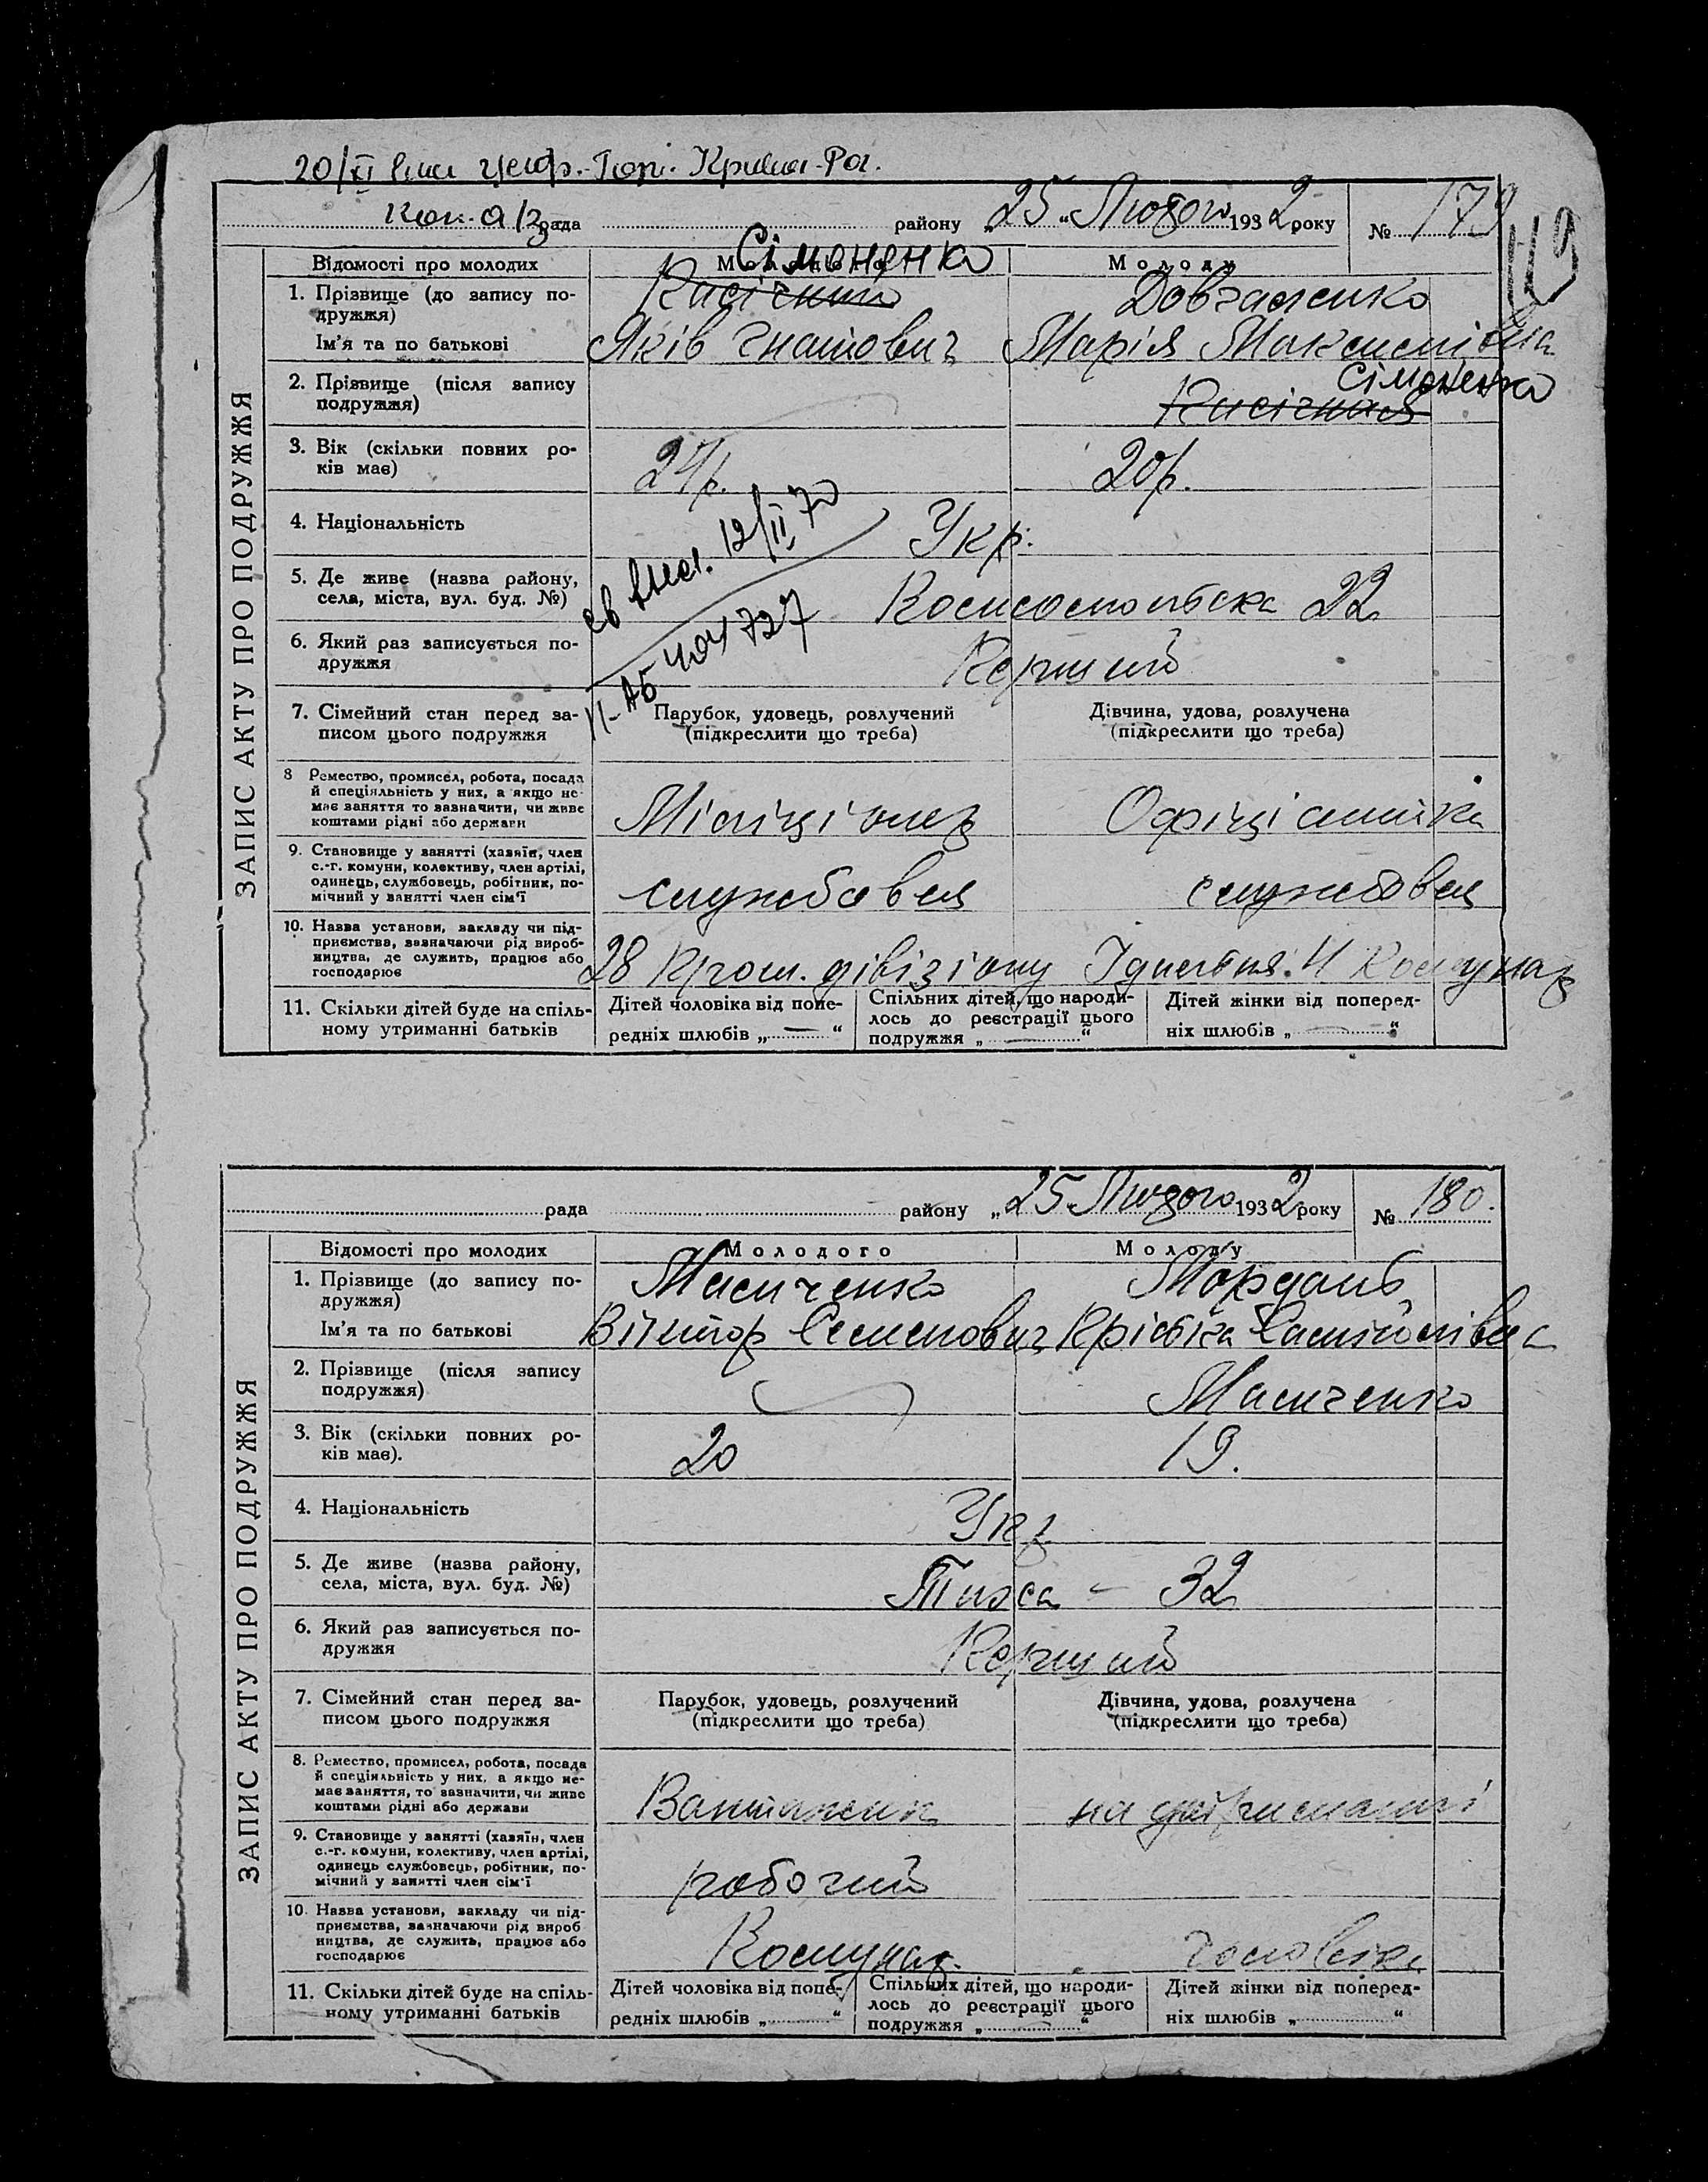 20/XI
рада району „25“ Лютого 1932 року № 179
119
ЗАПИС АКТУ ПРО ПОДРУЖЖЯ
Відомості про молодих Молодого Молоду
Сімоненко
1. Прізвище (до запису по-
дружжя) Кисічний Довгаленко
Ім'я та по батькові Яків Гнатович Марія Максимівна
2. Прізвище (після запису
подружжя) Сімоненко
Кисічная
3. Вік (скільки повних ро-
ків має) 24 р. 20 р.
4. Національність Укр.
12/II 70
5. Де живе (назва району,
села, міста, вул. буд. №) Комсомольска 22
II-АБ 404727
6. Який раз записується по-
дружжя Перший
7. Сімейний стан перед за-
писом цього подружжя
Парубок, удовець, розлучений
(підкреслити що треба)
Дівчина, удова, розлучена
(підкреслити що треба)
8 Ремество, промисел, робота, посада
й спеціяльність у них, а якщо не-
має заняття то зазначити, чи живе
коштами рідні або держави
Міліціонер Офіціянтка
9. Становище у занятті (хазяїн, член
с.-г. комуни, колективу, член артілі,
одинець, службовець, робітник, по-
мічний у занятті член сім'ї
службовец службовец
10. Назва установи, закладу чи під-
приємства, зазначаючи рід вироб-
ництва, де служить, працює або
господарює
28 Пром. дівізіону Їдальня. 4 Комунар
11. Скільки дітей буде на спіль-
ному утриманні батьків
Дітей чоловіка від попе-
редніх шлюбів „ — “
Спільних дітей, що народи-
лось до реєстрації цього
подружжя „ — “
Дітей жінки від поперед-
ніх шлюбів „ — “
рада району „25 Лютого 1932 року № 180.
ЗАПИС АКТУ ПРО ПОДРУЖЖЯ
Відомості про молодих Молодого Молоду
1. Прізвище (до запису по-
дружжя) Масиченко Мордань
Ім'я та по батькові Віктор Семенович
2. Прізвище (після запису
подружжя) Масиченко
3. Вік (скільки повних ро-
ків має). 20 19.
4. Національність Укр
5. Де живе (назва району,
села, міста, вул. буд. №) - 32
6. Який раз записується по-
дружжя Перший
7. Сімейний стан перед за-
писом цього подружжя
Парубок, удовець, розлучений
(підкреслити що треба)
Дівчина, удова, розлучена
(підкреслити що треба)
8. Ремество, промисел, робота, посада
й спеціяльність у них, а якщо не-
має заняття, то зазначити, чи живе
коштами рідні або держави
Вантажник на утриманні
9. Становище у занятті (хазяїн, член
с.-г. комуни, колективу, член артілі,
одинець службовець, робітник, по-
мічний у занятті член сім'ї
робочий
10. Назва установи, закладу чи під-
приємства, зазначаючи рід вироб
ництва, де служить, працює або
господарює
Комунар. чоловіка
11. Скільки дітей буде на спіль-
ному утриманні батьків
Дітей чоловіка від попе-
редніх шлюбів „ “
Спільних дітей, що народи-
лось до реєстрації цього
подружжя „ “
Дітей жінки від поперед-
ніх шлюбів „ “